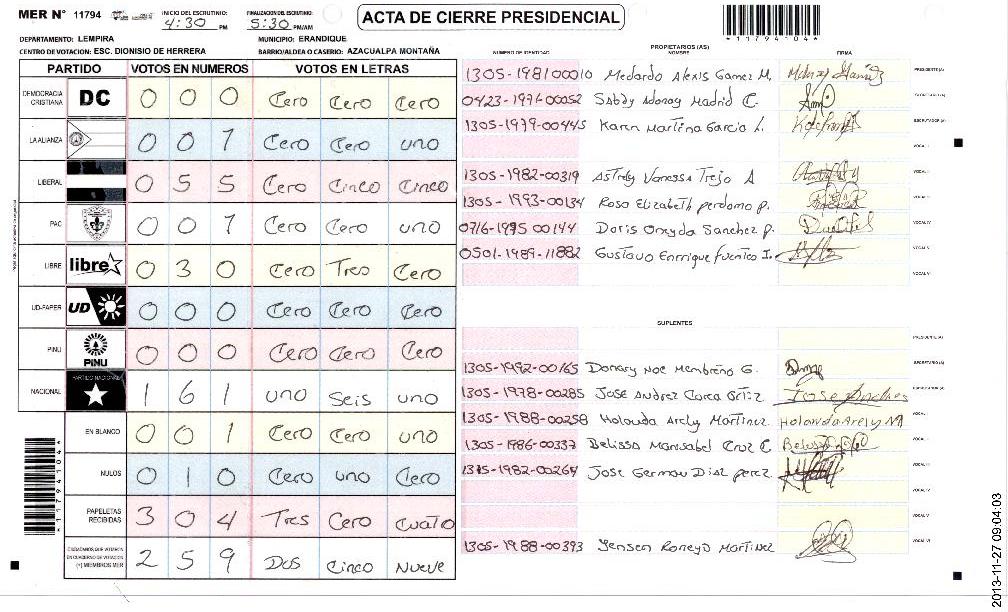 MER N° 11794
INICIO DEL ESCRUTINIO: 4:30 PM
FINALIZACION DEL ESCRUTINIO: 5:30 PM/AM
ACTA DE CIERRE PRESIDENCIAL
*11794104*
DEPARTAMENTO: LEMPIRA
MUNICIPIO: ERANDIQUE
CENTRO DE VOTACION: ESC. DIONISIO DE HERRERA
BARRIO/ALDEA O CASERIO: AZACUALPA MONTAÑA
PARTIDO VOTOS EN NUMEROS VOTOS EN LETRAS
DEMOCRACIA CRISTIANA DC 0 0 0 Cero Cero Cero
LA ALIANZA 0 0 1 Cero Cero uno
LIBERAL 0 5 5 Cero Cinco Cinco
PAC 0 0 1 Cero Cero uno
LIBRE libre 0 3 0 Cero Tres Cero
UD-FAPER UD 0 0 0 Cero Cero Cero
PINU PINU 0 0 0 Cero Cero Cero
NACIONAL PARTIDO NACIONAL 1 6 1 uno Seis uno
EN BLANCO 0 0 1 Cero Cero uno
NULOS 0 1 0 Cero uno Cero
PAPELETAS RECIBIDAS 3 0 4 Tres Cero Cuato
CIUDADANOS QUE VOTARON EN CUADERNO DE VOTACION (+) MIEMBROS MER 2 5 9 Dos Cinco Nueve
*11794104*
PROPIETARIOS (AS)
NUMERO DE IDENTIDAD NOMBRE FIRMA
1305-1981 00010 Medardo Alexis Gamez M. PRESIDENTE (A)
0423-1976-00052 Sabdy Adonay Madrid C. SECRETARIO (A)
1305-1979-00445 Karen Martina Garcia L. ESCRUTADOR (A)
VOCAL I
1305-1982-00319 Astrely Vanessa Trejo A VOCAL II
1305-1993-00134 Rosa Elizabeth perdomo p. VOCAL III
0716-1995 00144 Doris Oneyda Sanchez p. VOCAL IV
0501-1989-11882 Gustavo Enrrique fuentes I. VOCAL V
VOCAL VI
SUPLENTES
PRESIDENTE (A)
1305-1992-00165 Donary Noe Membreño G. SECRETARIO (A)
1305-1978-00285 Jose Andrez Ortiz Jose Andres ESCRUTADOR (A)
1305-1988-00258 Holanda Arely Martinez Holanda Arely M VOCAL I
1305-1986-00337 Belissa Cruz C. VOCAL II
1315-1982-00264 Jose German Diaz perez VOCAL III
VOCAL IV
VOCAL V
1305-1988-00393 Yensen Roneyd Martinez VOCAL VI
2013-11-27 09:04:03